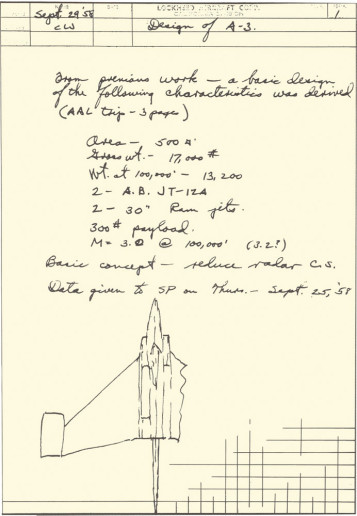 LOCKHEED AIRCRAFT CORP.
CALIFORNIA DIVISION
Sept. 29 '58
CW
Design of A-3.
1
From previous work — a basic design
of the following characteristics was derived
(AAL trip - 3 pages)
Area - 500 #'
Gross wt. - 17,000 #
Wt. at 100,000' - 13,200
2 - A.B. JT-12A
2 - 30" Ram jets.
300# payload.
M = 3.0 @ 100,000' (3.2?)
Basic concept — reduce radar C.S.
Data given to SP on Thurs. - Sept. 25, '58